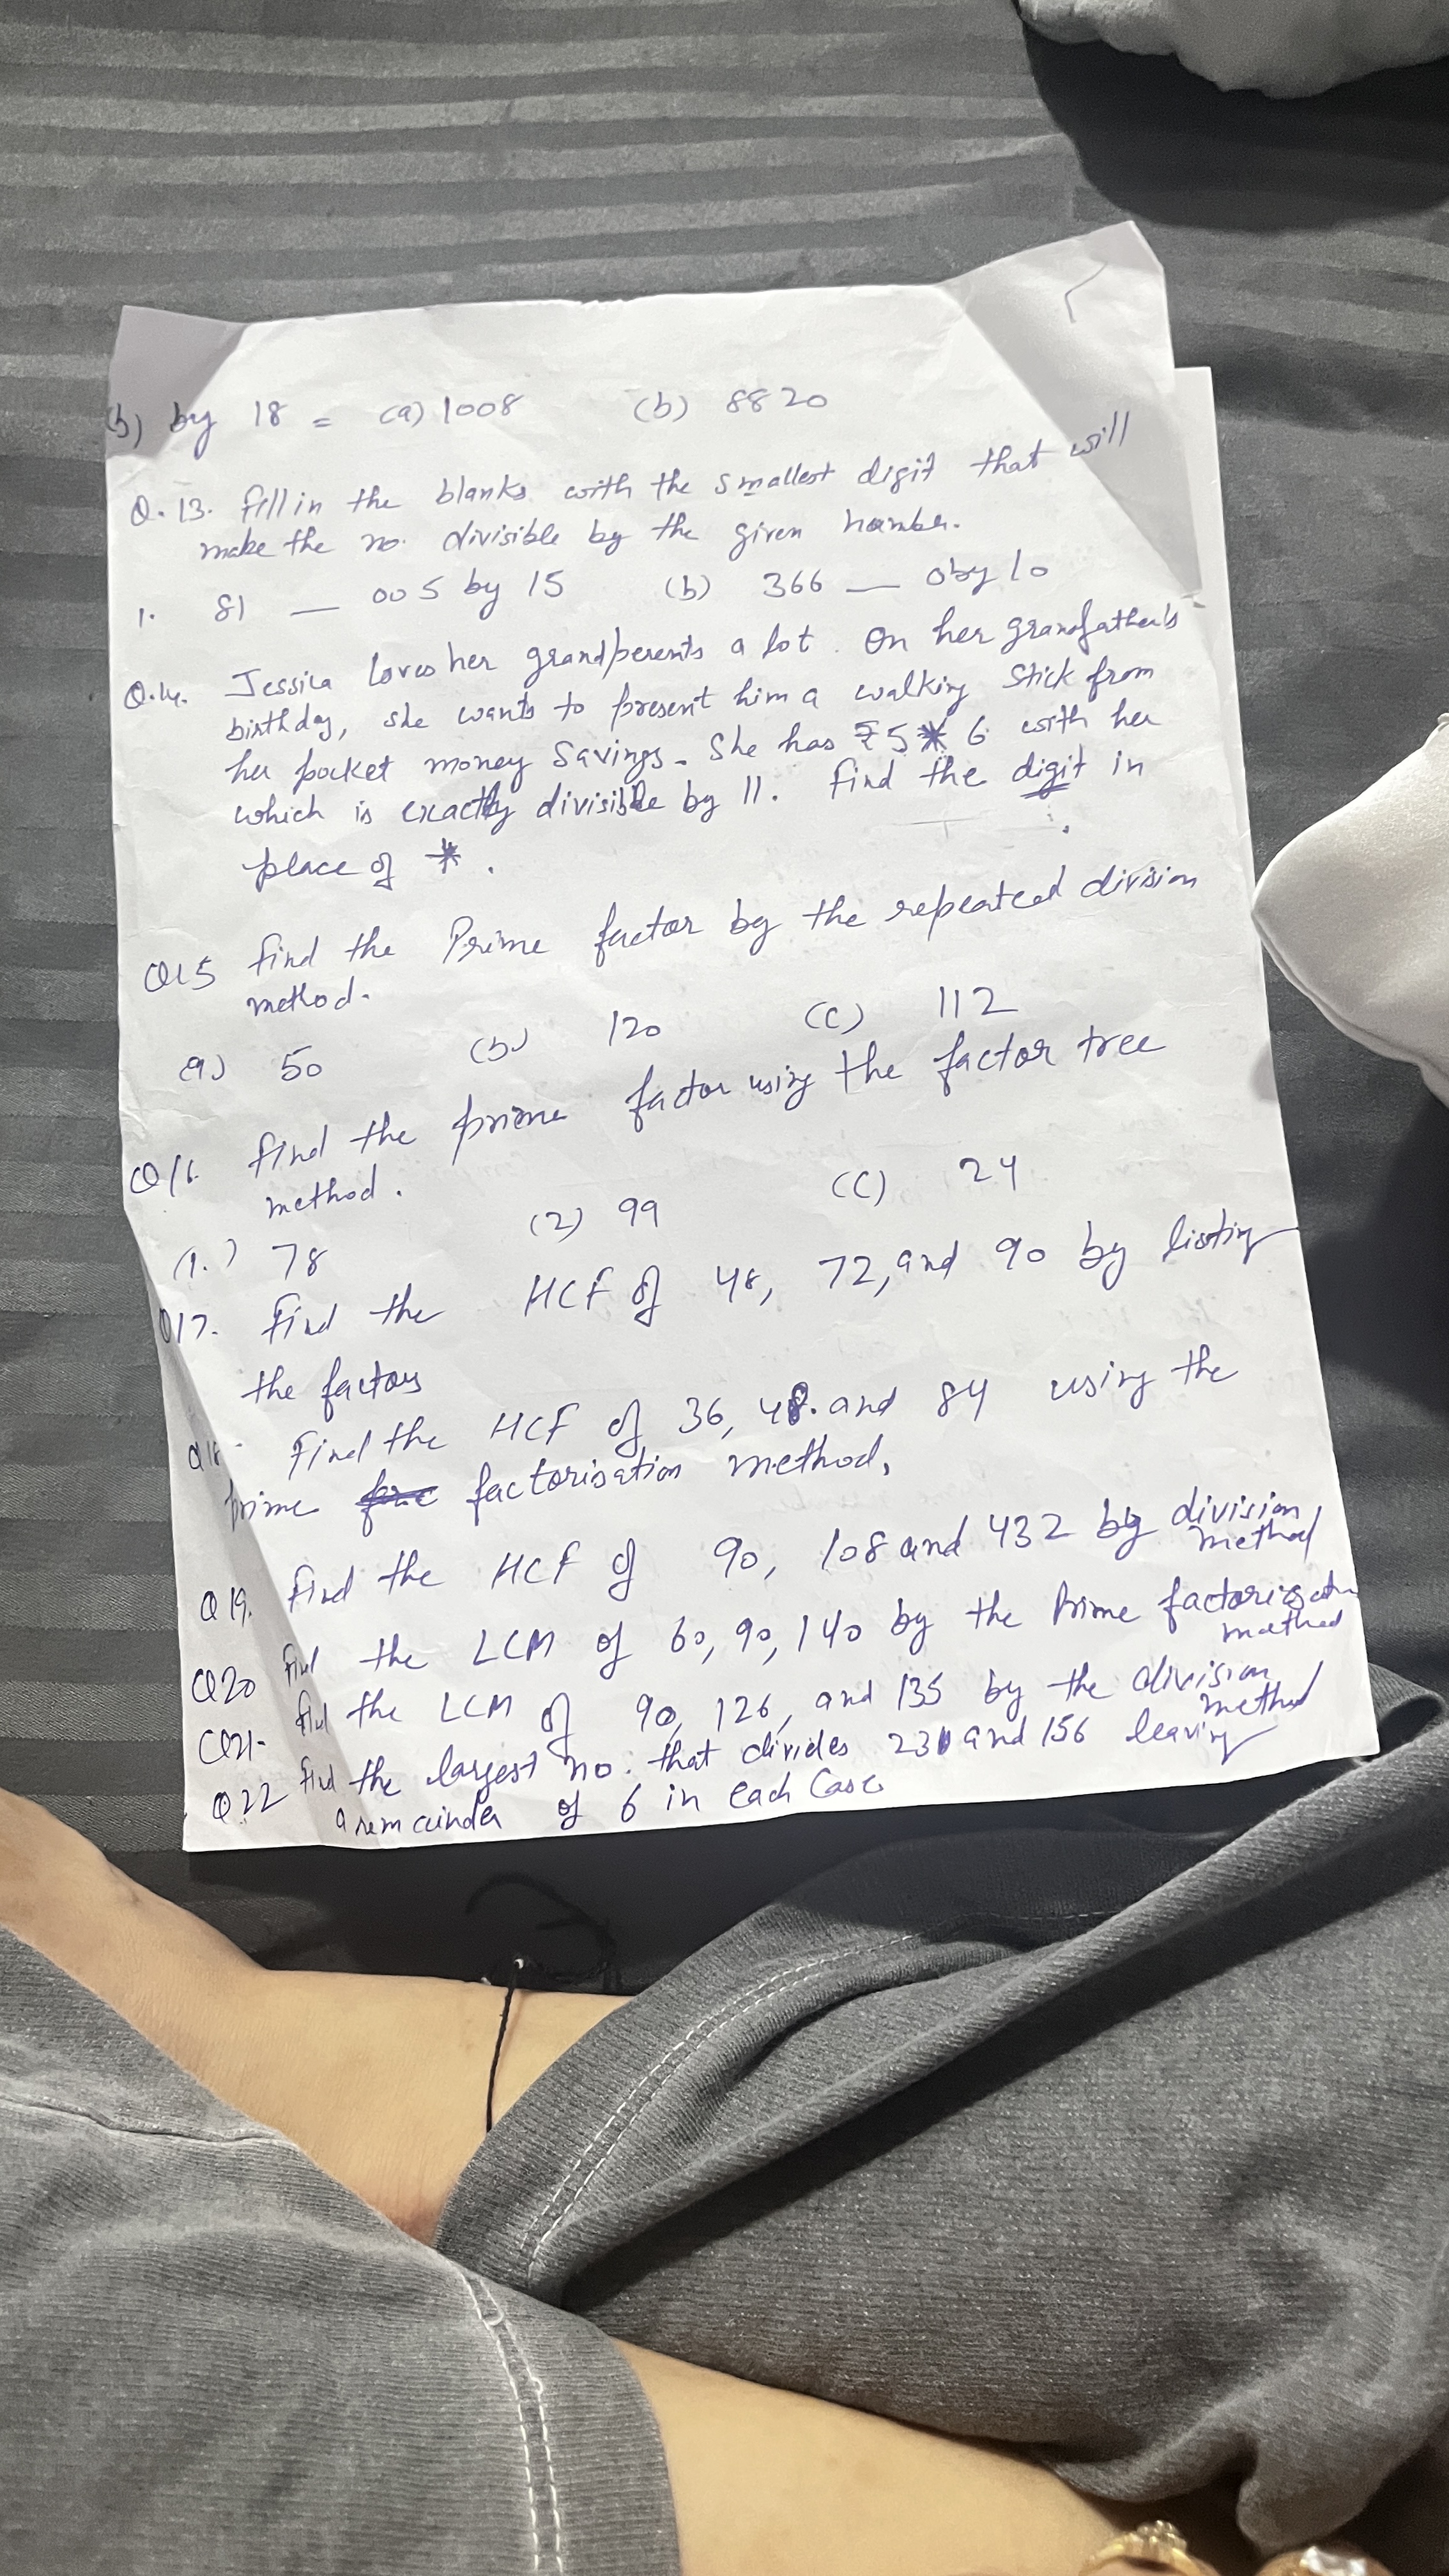 (b) by 18 = (a) 1008 (b) 8820
Q.13. fill in the blanks with the smallest digit that will
make the no. divisible by the given number.
1. 81 __ 005 by 15 (b) 366 __ 0 by 10
Q.14. Jessica loves her grandperents a lot. On her grandfather's
birthday, she wants to present him a walking stick from
her pocket money savings. She has ₹5*6 with her
which is exactly divisible by 11. find the digit in
place of *.
Q15 find the Prime factor by the repeated division
method.
(a) 50 (b) 120 (c) 112
Q16. find the prime factor using the factor tree
method.
(1.) 78 (2) 99 (C) 24
Q17. find the HCF of 48, 72, and 90 by listing
the factors
Q18. Find the HCF of 36, 48. and 84 using the
prime factorisation method.
Q19. find the HCF of 90, 108 and 432 by division
method
Q20 find the LCM of 60, 90, 140 by the Prime factorization
method
Q21. find the LCM of 90, 126, and 135 by the division
method
Q22 find the largest no. that divides 231 and 156 leaving
a remainder of 6 in each Case